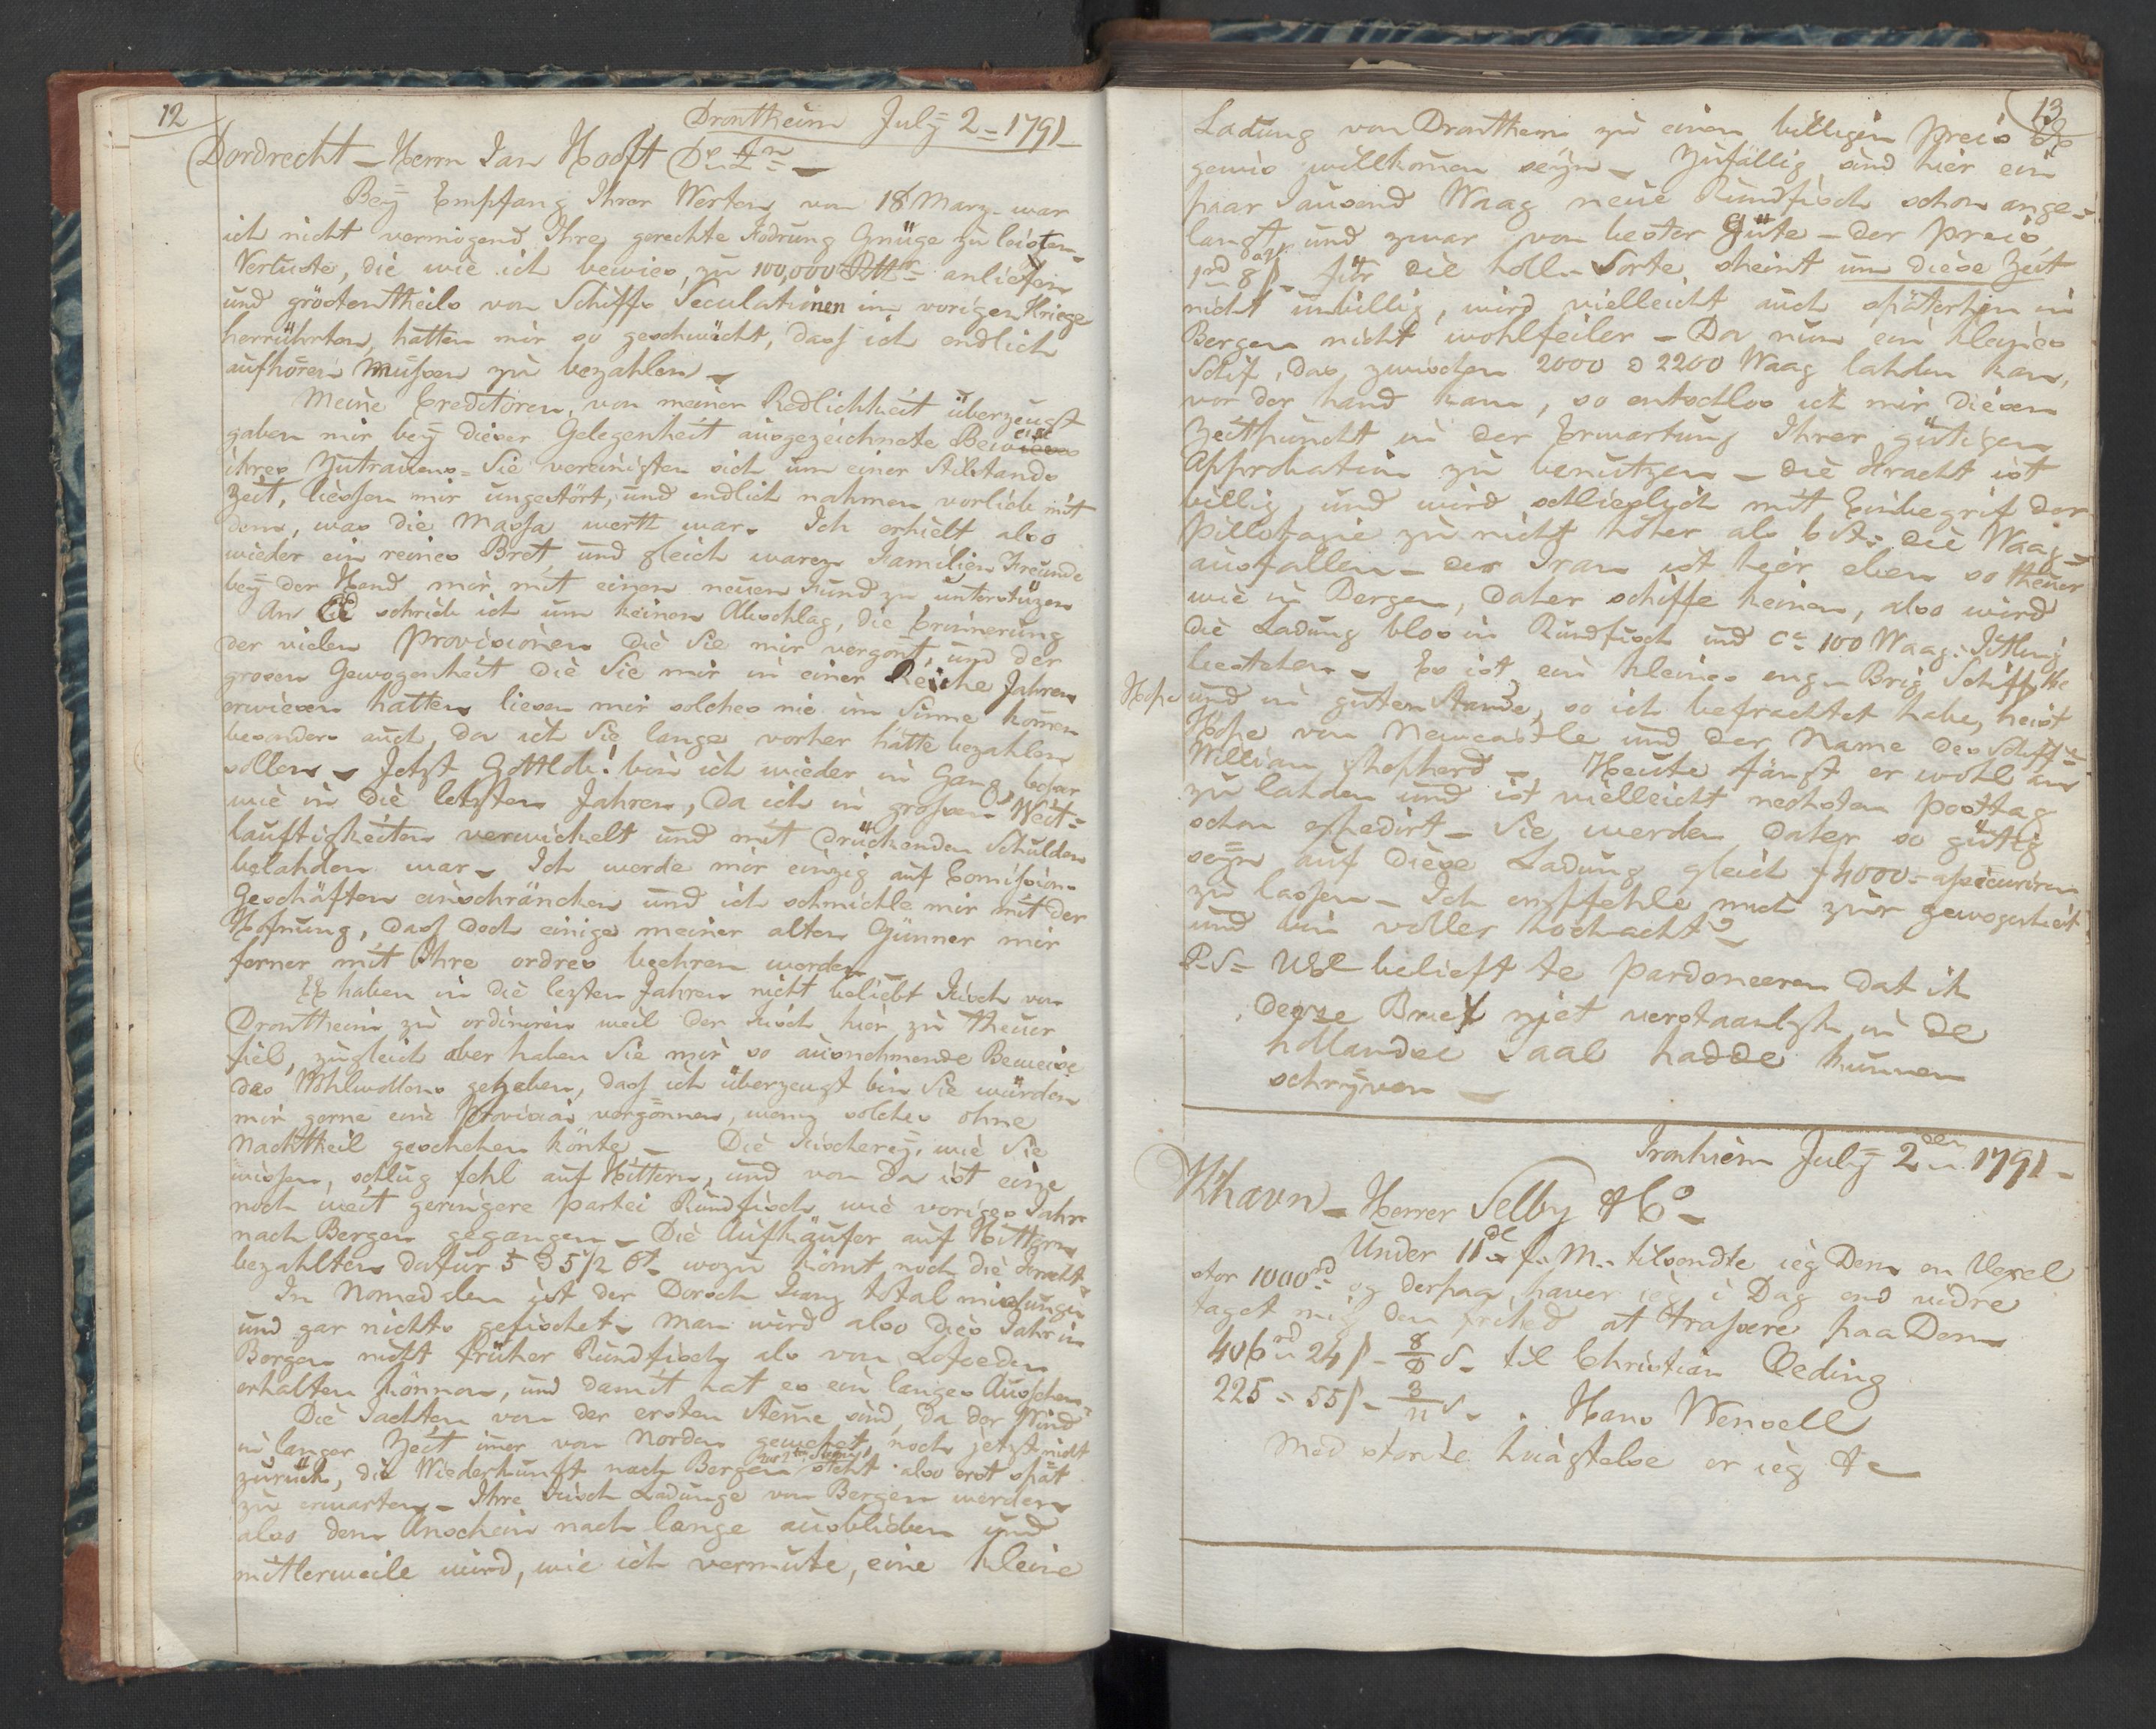 12
Drontheim July 2 = 1791 –
Dordrecht – Herrn Jan Hooft
Bey Empfang Ihrer Werten von 18 Marz war
ich nicht vermögend Ihre gerechte Fodrung Gnüge zu leisten –
Verluste, die wie ich bewies, zu 100,000 anliefen
und gröstentheils von Schiffs Speculationen im vorigen Kriege
herrührten, hatten mir so geschwächt, dass ich endlich
aufhören müssen zu bezahlen –
Meine Creditoren, von meiner Redlichkeit überzeugt
gaben mir bey dieser Gelegenheit ausgezeichnete Beweise
ihres Zutrauens – Sie vereinigten sich um einer Stilstands
Zeit, liessen mir ungestört, und endlich nahmen vorlieb mit
dem, was die Massa werth war – Ich erhielt also
wieder ein reines Bret, und gleich waren Familien Freunde
bey der Hand mir mit einen neuen Fund zu unterstüzen
An schrieb ich um keinen Abschlag, die Erinnerung
der vielen Provisionen die Sie mir vergönt, und der
grosen Gewogenheit die Sie mir in einer Reiche Jahren
erwiesen hatten liesen mir solches nie im Sinne komen
besonders auch, da ich Sie lange vorher hätte bezahlen
sollen – Jetzt Gottlob! bin ich wieder in Gang, besser
wie in die letzten Jahren, da ich in grossen Weit=
lauftigkeiten verwickelt und mit drückenden Schulden
belahden war – Ich werde mir einzig auf Comission
Geschäften einschräncken und ich schmichle mir mit der
Hofnung, dass doch einige meiner alten Günner mir
ferner mit Ihre ordres beehren werden
haben in die lezten Jahren nicht beliebt Fisch von
Drontheim zu ordiniren weil der Fisch hier zu theuer
fiel, zugleich aber haben Sie mir so ausnehmende Beweise
des Wohlwollens gegeben, dass ich überzeugt bin Sie würden
mir gerne eine Provision vergönnen, wenn solches ohne
Nachtheil geschehen könte – Die Fischerey, wie Sie
wissen, schlug fehl auf Hittern, und von da ist eine
noch weit geringere partei Rundfisch wie voriges Jahr
nach Bergen gegangen – Die Aufkäufer auf Hittern
bezahlten dafür 5 a 5 1/2 wozu kömt noch die Fracht
In Nomedalen ist der Dorsch Fang total mislungen
und gar nichts gefischet – Man wird also dies Jahr in
Bergen nicht früher Rundfisch als von Lofoeden
erhalten können, und damit hat es ein langes Aussehen
Die Jachten von der ersten Stemme sind, da der Wind
in langer Zeit imer von Norden gewehet, noch jetzt nicht
zurück, die Wiederkunft nach Bergen zur 2te Stemne steht also erst spät
zu erwarten – Ihre Fisch Ladunge von Bergen werden
also dem Anschein nach lange ausblieben und
mitlerweile wird, wie ich vermute, eine kleine
13
Ladung von Drontheim zu einen billigen Preis
gewis willkomen seyn – Zufällig sind hier ein
paar Tausend Waag neue Rundfisch schon ange=
langt und zwar von bester Güte – der Preis
1 rd 8 s für die holl. Sorte scheint um diese Zeit
nicht unbillig, wird vielleicht auch späterhin in
Bergen nicht wohlfeiler – Da nun ein kleines
Schif, das zwischen 2000 a 2200 Waag lahden kan,
vor der hand kam, so entschlos ich mir diesen
Zeitpunckt in der Erwartung Ihrer gütigen
Approbation zu benutzen – die Fracht ist
billig, und wird schlieslich mit Einbegrif der
Pillotasie zu nicht höher als 6 st. die Waag
ausfallen – der Tran ist hier eben so theuer
wie in Bergen, daher schiffe keinen, also wird
die Ladung blos in Rundfisch und ca 100 Waag Titling
bestehen – Es ist ein kleines eng. Brig Schiff
Hope und in guten Stande, so ich befrachtet habe, heist
Hope von Newcastle und der Name des Schiff
William Shepherd – Heute fängt er wohl an
zu lahden und ist vielleicht nechsten Posttag
schon expedirt – Sie werden daher so gütig
seyn auf diese Ladung gleich f 4000 – assecuriren
zu lassen – Ich empfehle mich zur gewogenheit
und bin voller hochacht
P.S. UEl belieft te pardoneeren dat ik
deeze Brief niet verstaanlyk in de
hollandse Taal hadde kunnen
schryven –
Tronhiem July 2 den 1791 –
Khavn – Herrer Selby & Co –
Under 11 f. M. tilsendte ieg Dem en Vexel
stor 1000 rd og derpaa haver ieg i Dag end vidre
taget mig den frihed at trassere paa Dem
406 rd 24 s – til Christian Oeding
225 – 55 s – Hans Wensell
Med storste hviagtelse er ieg